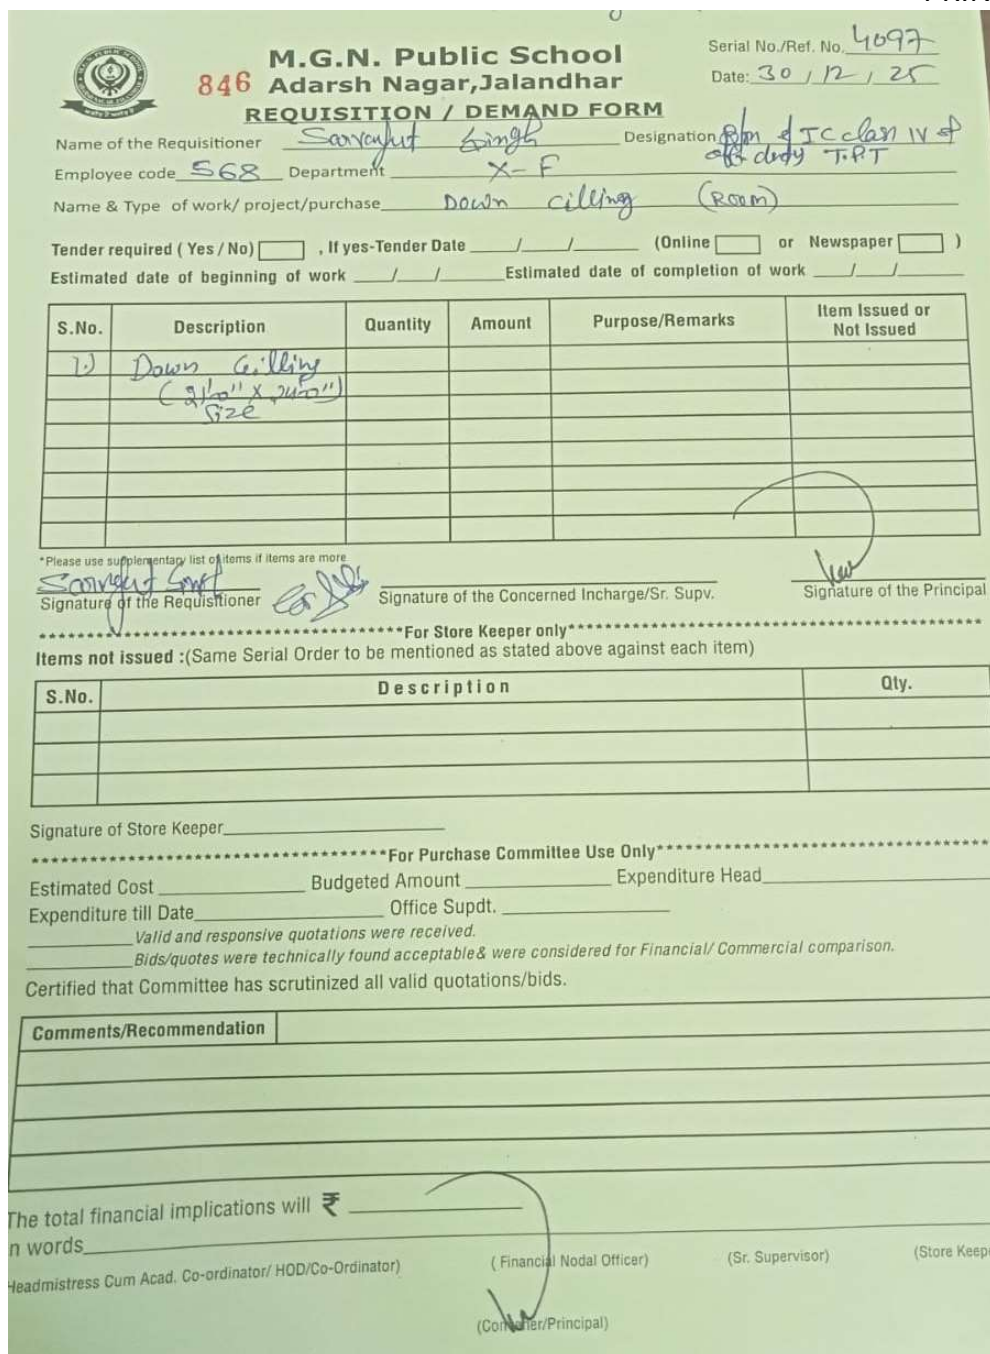 Serial No./Ref. No. 4097
M.G.N. Public School
846 Adarsh Nagar,Jalandhar
Date: 30 / 12 / 25
REQUISITION / DEMAND FORM
Name of the Requisitioner Sarvanjut Singh Designation I C class IV of
off duty T.P.T
Employee code 568 Department X-F
Name & Type of work/ project/purchase Down cilling (Room)
Tender required ( Yes / No) , If yes-Tender Date __/__/__ (Online or Newspaper )
Estimated date of beginning of work __/__/__ Estimated date of completion of work __/__/__
S.No. Description Quantity Amount Purpose/Remarks Item Issued or Not Issued
1.) Down Ceilling
Size
*Please use supplementary list of items if items are more
Signature of the Requisitioner Signature of the Concerned Incharge/Sr. Supv. Signature of the Principal
For Store Keeper only
Items not issued :(Same Serial Order to be mentioned as stated above against each item)
S.No. Description Qty.
Signature of Store Keeper
For Purchase Committee Use Only
Estimated Cost Budgeted Amount Expenditure Head
Expenditure till Date Office Supdt.
Valid and responsive quotations were received.
Bids/quotes were technically found acceptable& were considered for Financial/ Commercial comparison.
Certified that Committee has scrutinized all valid quotations/bids.
Comments/Recommendation
The total financial implications will ₹
n words
Headmistress Cum Acad. Co-ordinator/ HOD/Co-Ordinator) ( Financial Nodal Officer) (Sr. Supervisor) (Store Keep
(Con er/Principal)